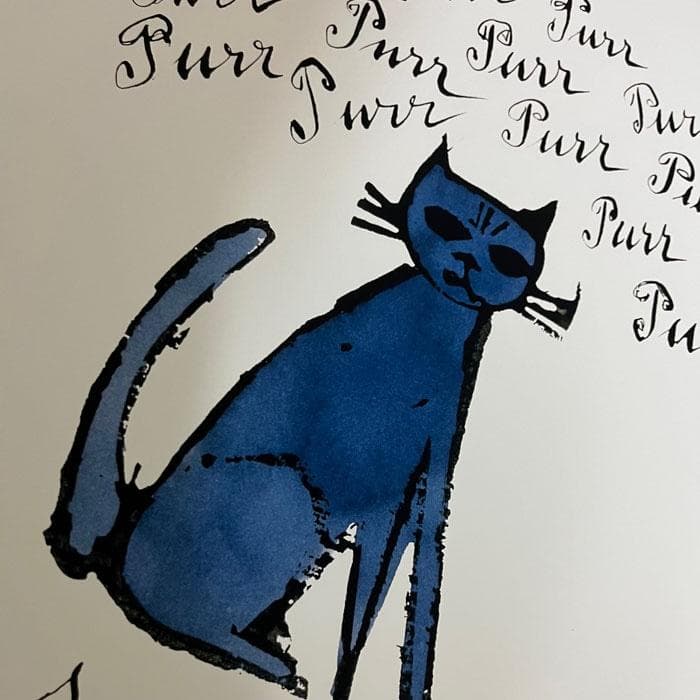 Purr
Purr Purr Purr
Purr Purr Pur
Pu
Purr
Pu